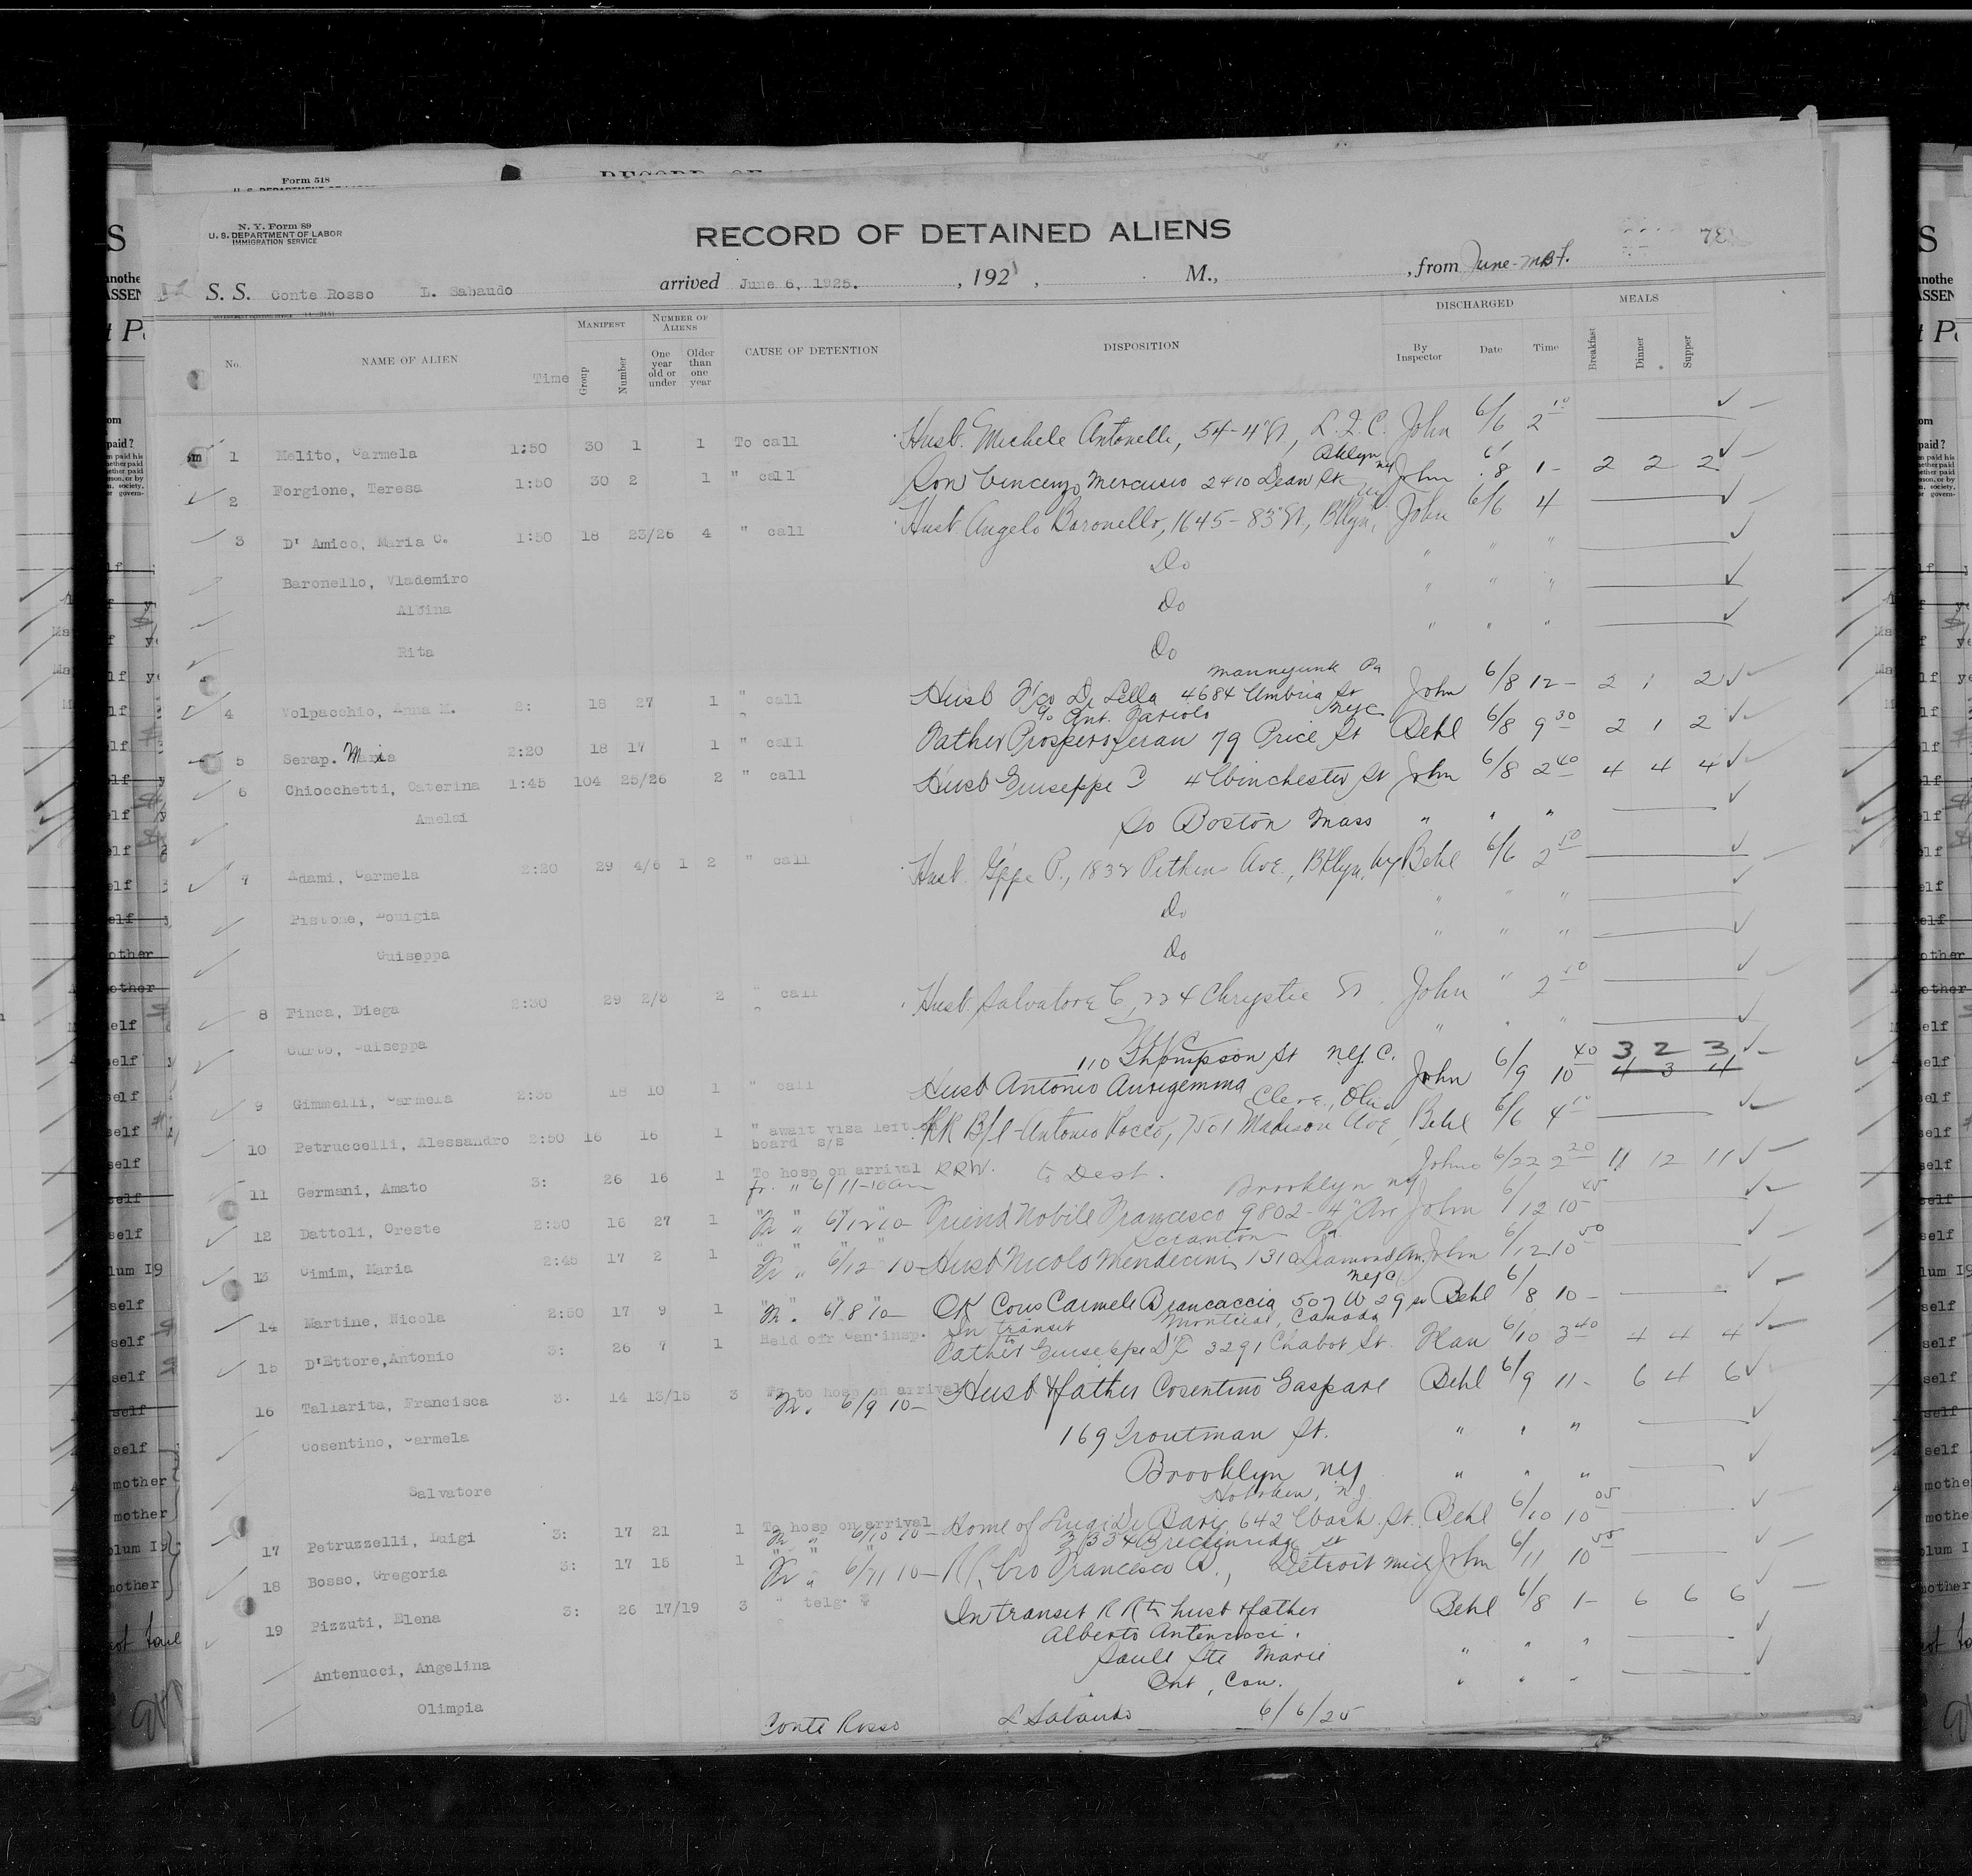 Form 518
N. Y. Form 89
U. S. DEPARTMENT OF LABOR
IMMIGRATION SERVICE
RECORD OF DETAINED ALIENS
S. S. Conte Rosso L. Sabaudo arrived June 6, 1925. , 192 , M., , from June
No. NAME OF ALIEN Time MANIFEST Group Number NUMBER OF ALIENS One year old or under Older than one year CAUSE OF DETENTION DISPOSITION DISCHARGED By Inspector Date Time MEALS Breakfast Dinner Supper
1 Melito, Carmela 1:50 30 1 1 To call Husb. Michele Antonelli, 54-4" St, L.I.C. John 6/6 2 10
Bklyn NY
2 Forgione, Teresa 1:50 30 2 1 " call Son Vincenzo Mercurio 2410 Dean St John 6/8 1- 2 2 2
3 D' Amico, Maria C. 1:50 18 23/26 4 " call Husb Angelo Baronello, 1645-83" St, Bklyn, NY John 6/6 4
Baronello, Vlademiro Do " " "
Albina Do " " "
Rita Do " " "
Mannyunk Pa
4 Volpacchio, Anna M. 2: 18 27 1 " call Husb F'co Di Lella 4684 Umbria St John 6/8 12- 2 1 2
c/o Ant. Nyc
5 Serap. Maria 2:20 18 17 1 " call Father Prospero 79 Price St Behl 6/8 9 30 2 1 2
6 Chiocchetti, Caterina 1:45 104 25/26 2 " call Husb Giuseppe C 4 Winchester St John 6/8 2 40 4 4 4
So Boston Mass " " "
7 Adami, Carmela 2:20 29 4/6 1 2 " call Husb. G'ppe P., 1832 Pitkin Ave., Bklyn, NY Behl 6/6 2 50
Pistone, Do " "
Guiseppa Do " " "
8 Finca, Diega 2:30 29 2/3 2 " call Husb. Salvatore C, 224 Chrystie St John " 2 50
Curto, Guiseppa NYC " " "
110 Thompson St NYC. 3 2 3
9 Gimmelli, Carmela 2:35 18 10 1 " call Husb Antonio Aurigemma John 6/9 10 40 4 3 4
Cleve., Ohio
10 Petruccelli, Alessandro 2:50 16 16 1 " await visa left on board s/s RR B/l Antonio Rocco, 7501 Madison Ave, Behl 6/6 4 10
11 Germani, Amato 3: 26 16 1 To hosp on arrival fr. " 6/11-10am RRW. to Dest. John 6/22 2 20 11 12 11
Brooklyn ny
12 Dattoli, Oreste 2:50 16 27 1 " " Fr " 6/12 10- Friend Nobile Francesco 9802-4" Ave John 6/12 10 45
Scranton Pa
13 Cimim, Maria 2:45 17 2 1 " " Fr " 6/12 10- Husb Nicolo Mendecini, 1310 Diamond Av. John 6/12 10 50
nyc
14 Martino, Nicola 2:50 17 9 1 " " Fr. " 6/8 10- OK Cous Carmele Brancaccia 507 W 29 St Behl 6/8 10-
In transit Montreal, Canada
15 D'Ettore, Antonio 3: 26 7 1 Held off Can-insp. to Father Giuseppe D'E 3291 Chabot St. Hau 6/10 3 40 4 4 4
16 Tallarita, Francisca 3: 14 13/15 3 to hosp on arrival Fr. 6/9 10- Husb & father Cosentino Gaspare Behl 6/9 11- 6 4 6
Cosentino, Carmela 169 Troutman St. " " "
Salvatore Brooklyn NY " " "
Hoboken, NJ
17 Petruzzelli, Luigi 3: 17 21 1 To hosp on arrival Fr " 6/10 10- Home of Luigi Di Bari 642 Wash. St. Behl 6/10 10 05
3334 Breckinridge St
18 Bosso, Gregoria 3: 17 15 1 " " Fr " 6/11 10- RR, bro Francesco B., Detroit Mich John 6/11 10 55
19 Pizzuti, Elena 3: 26 17/19 3 " telg. In transit RR to husb & father Behl 6/8 1- 6 6 6
Alberto Antenucci.
Antenucci, Angelina Sault Ste Marie " " "
Olimpia Ont, Can. " " "
Conte Rosso L Sabaudo 6/6/25